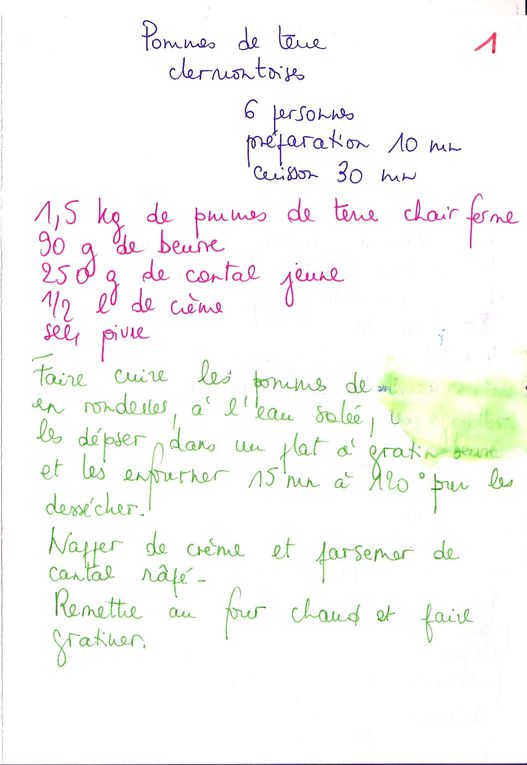 Pommes de terre
1
clermontoises
6 personnes
préparation 10 mn
cuisson 30 mn
1,5 kg de pommes de terre chair ferme
90 g de beurre
250 g de cantal jeune
1/2 l de crème
sel, poivre
Faire cuire les pommes de
en rondelles, à l'eau salée,
les dépser dans un plat à gratin beurré
et les enfourner 15 mn à 120° pour les
dessécher.
Napper de crème et parsemer de
cantal râpé-
Remettre au four chaud et faire
gratiner.